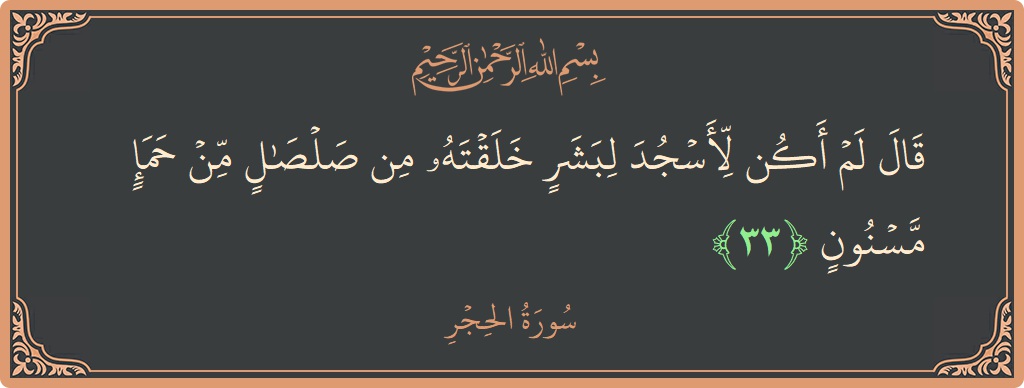 بِسْمِ اللَّهِ الرَّحْمَٰنِ الرَّحِيمِ
قَالَ لَمْ أَكُن لِّأَسْجُدَ لِبَشَرٍ خَلَقْتَهُۥ مِن صَلْصَٰلٍ مِّنْ حَمَإٍ
مَّسْنُونٍ ﴿٣٣﴾
سُورَةُ الحِجْرِ